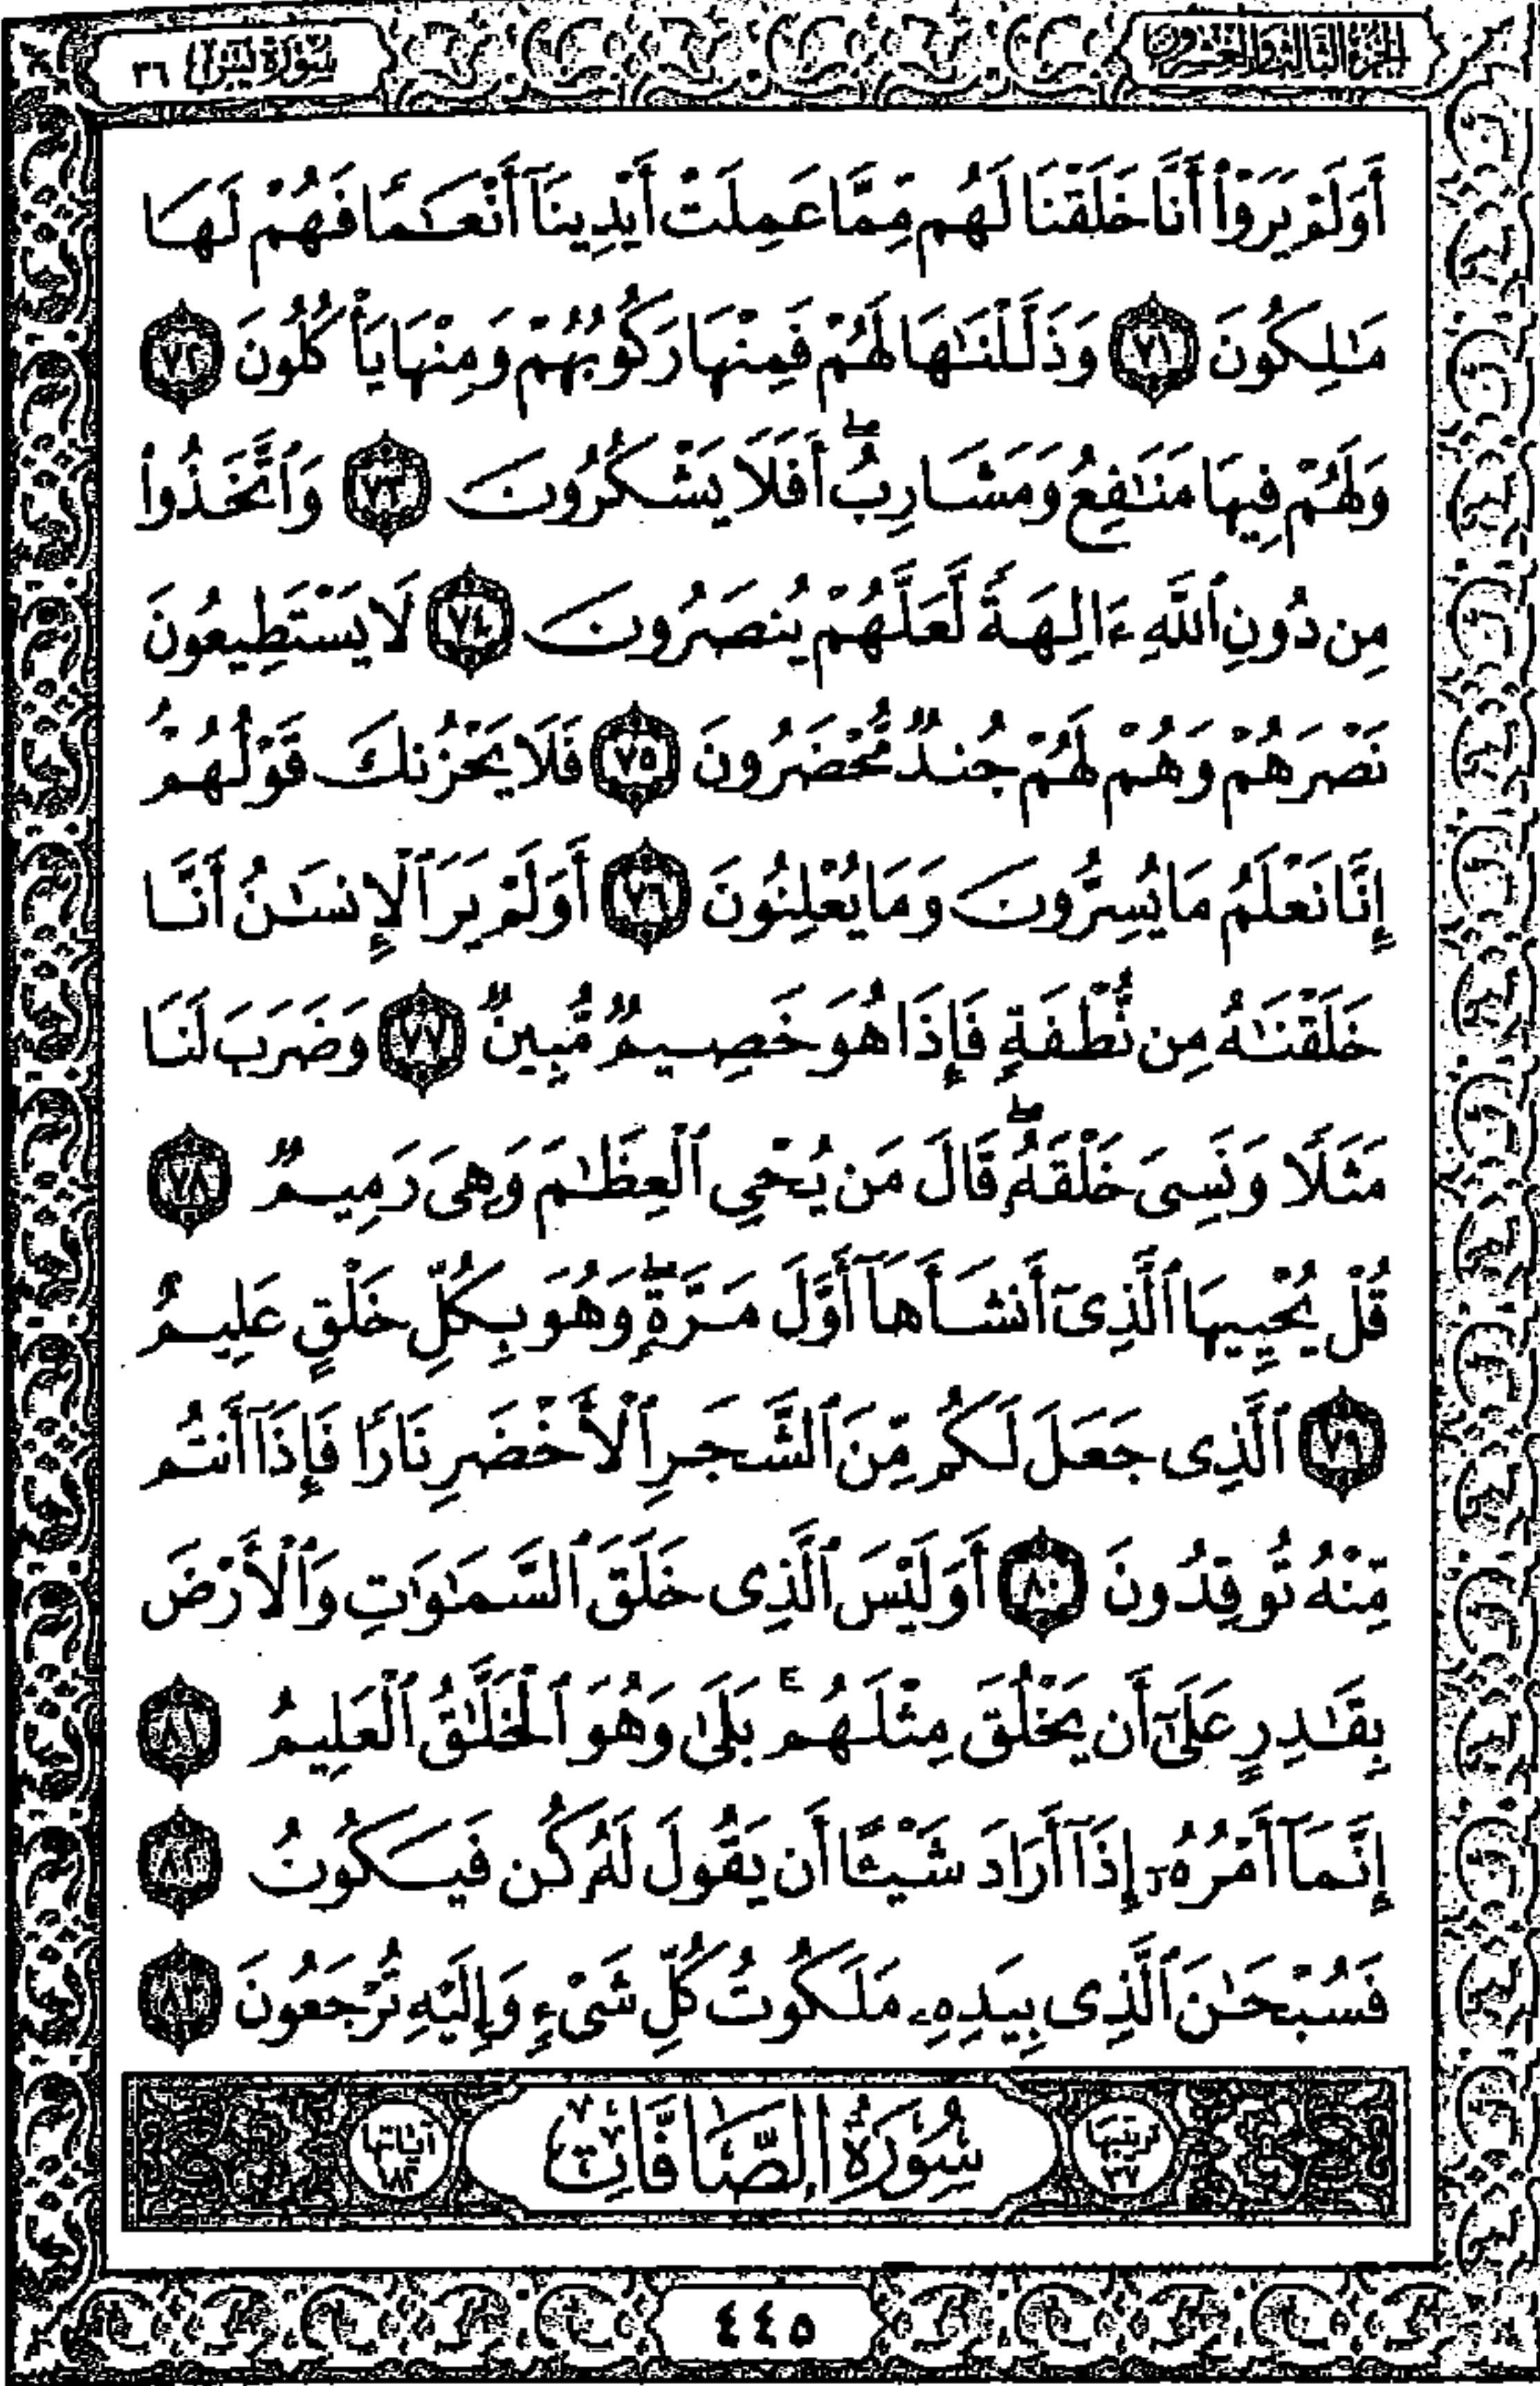 سُورَةُ يسٓ ٣٦
الجزء الثالث والعشرون
أَوَلَمْ يَرَوْا۟ أَنَّا خَلَقْنَا لَهُم مِّمَّا عَمِلَتْ أَيْدِينَآ أَنْعَـٰمًا فَهُمْ لَهَا
مَـٰلِكُونَ ٧١ وَذَلَّلْنَـٰهَا لَهُمْ فَمِنْهَا رَكُوبُهُمْ وَمِنْهَا يَأْكُلُونَ ٧٢
وَلَهُمْ فِيهَا مَنَـٰفِعُ وَمَشَارِبُ ۖ أَفَلَا يَشْكُرُونَ ٧٣ وَٱتَّخَذُوا۟
مِن دُونِ ٱللَّهِ ءَالِهَةً لَّعَلَّهُمْ يُنصَرُونَ ٧٤ لَا يَسْتَطِيعُونَ
نَصْرَهُمْ وَهُمْ لَهُمْ جُندٌ مُّحْضَرُونَ ٧٥ فَلَا يَحْزُنكَ قَوْلُهُمْ ۘ
إِنَّا نَعْلَمُ مَا يُسِرُّونَ وَمَا يُعْلِنُونَ ٧٦ أَوَلَمْ يَرَ ٱلْإِنسَـٰنُ أَنَّا
خَلَقْنَـٰهُ مِن نُّطْفَةٍ فَإِذَا هُوَ خَصِيمٌ مُّبِينٌ ٧٧ وَضَرَبَ لَنَا
مَثَلًا وَنَسِىَ خَلْقَهُۥ ۖ قَالَ مَن يُحْىِ ٱلْعِظَـٰمَ وَهِىَ رَمِيمٌ ٧٨
قُلْ يُحْيِيهَا ٱلَّذِىٓ أَنشَأَهَآ أَوَّلَ مَرَّةٍ ۖ وَهُوَ بِكُلِّ خَلْقٍ عَلِيمٌ
٧٩ ٱلَّذِى جَعَلَ لَكُم مِّنَ ٱلشَّجَرِ ٱلْأَخْضَرِ نَارًا فَإِذَآ أَنتُم
مِّنْهُ تُوقِدُونَ ٨٠ أَوَلَيْسَ ٱلَّذِى خَلَقَ ٱلسَّمَـٰوَٰتِ وَٱلْأَرْضَ
بِقَـٰدِرٍ عَلَىٰٓ أَن يَخْلُقَ مِثْلَهُم ۚ بَلَىٰ وَهُوَ ٱلْخَلَّـٰقُ ٱلْعَلِيمُ ٨١
إِنَّمَآ أَمْرُهُۥٓ إِذَآ أَرَادَ شَيْـًٔا أَن يَقُولَ لَهُۥ كُن فَيَكُونُ ٨٢
فَسُبْحَـٰنَ ٱلَّذِى بِيَدِهِۦ مَلَكُوتُ كُلِّ شَىْءٍ وَإِلَيْهِ تُرْجَعُونَ ٨٣
ترتيبها ٣٧ سُورَةُ الصَّافَّاتِ آياتها ١٨٢
٤٤٥